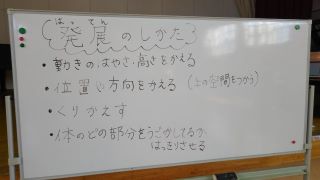 はってん
発展のしかた
・動きのはやさ・高さをかえる
・位置や方向をかえる(上の空間をつかう)
・くりかえす
・体のどの部分をうごかしてるか
はっきりさせる